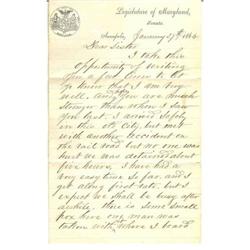 Legislature of Maryland,
Senate.
Annapolis, January 27th, 1864
Dear Sister
I take this
opportunity of writing
you a few lines to let
you know that I am very
well, and you are much
stronger than when I saw
you last. I arrived safely
in this old City, but met
with another accident on
the rail road but no one was
hurt we was detained about
five hours, I have had a
very easy time so far, and I
get along first rate, but I
expect we shall be busy after
awhile. there is some Small
pox here one man was
taken with where I board